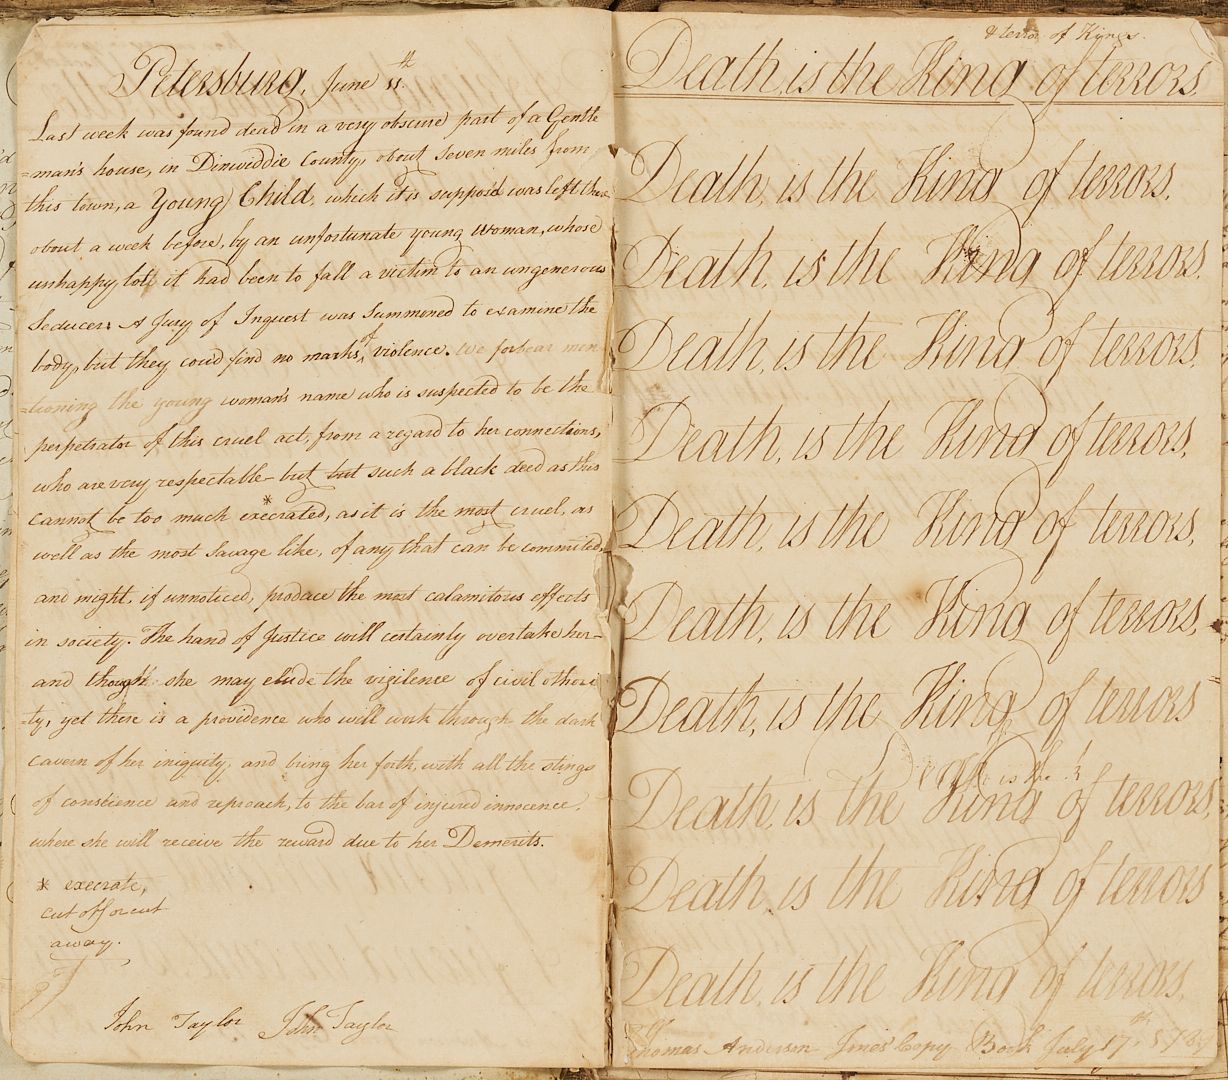 Petersburg, June 11th.
Last week was found dead in a very obscure part of a Gentle
=man's house, in Dinwiddie County, about seven miles from
this town, a Young Child, which it is supposd was left there
about a week before, by an unfortunate young woman, whose
unhappy lot, it had been to fall a victim to an ungenerous
Seducer: A Jury of Inquest was Summoned to examine the
body, but they could find no marks, of violence. We forbear men
=tioning the young woman's name who is suspected to be the
perpetrator of this cruel act, from a regard to her connections,
who are very respectable but but such a black deed as this
cannot be too much execrated,* as it is the most cruel, as
well as the most Savage like, of any that can be commited,
and might, if unnoticed, produce the most calamitous effects
in society. The hand of Justice will certainly overtake her
and though she may elude the vigilence of civil othori
=ty, yet there is a providence who will work through the dark
cavern of her iniquity, and bring her forth, with all the stings
of conscience and reproach, to the bar of injured innocence.
where she will receive the reward due to her Demerits.
* execrate,
cut off or cut
away.
John Taylor John Taylor
& terror of Kings.
Death, is the King of terrors.
Death, is the King of terrors.
Death, is the King of terrors.
Death, is the King of terrors.
Death, is the King of terrors.
Death, is the King of terrors.
Death, is the King of terrors.
Death, is the King of terrors
is the
Death, is the King of terrors,
Death, is the King of terrors
Death, is the King of terrors.
Thomas Anderson Copy Book July 17th